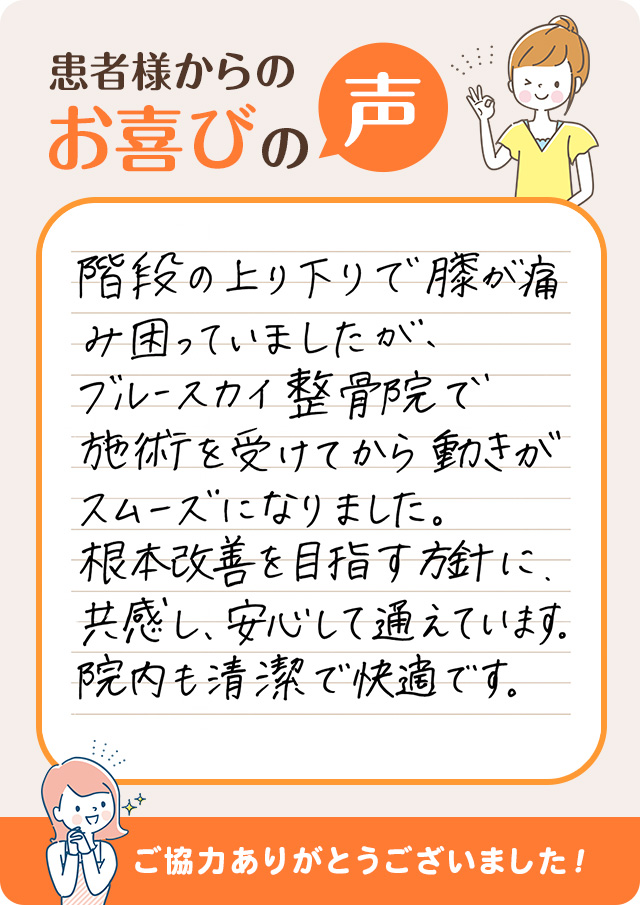 患者様からの
お喜びの声
階段の上り下りで膝が痛
み困っていましたが、
ブルースカイ整骨院で
施術を受けてから動きが
スムーズになりました。
根本改善を目指す方針に、
共感し、安心して通えています。
院内も清潔で快適です。
ご協力ありがとうございました！